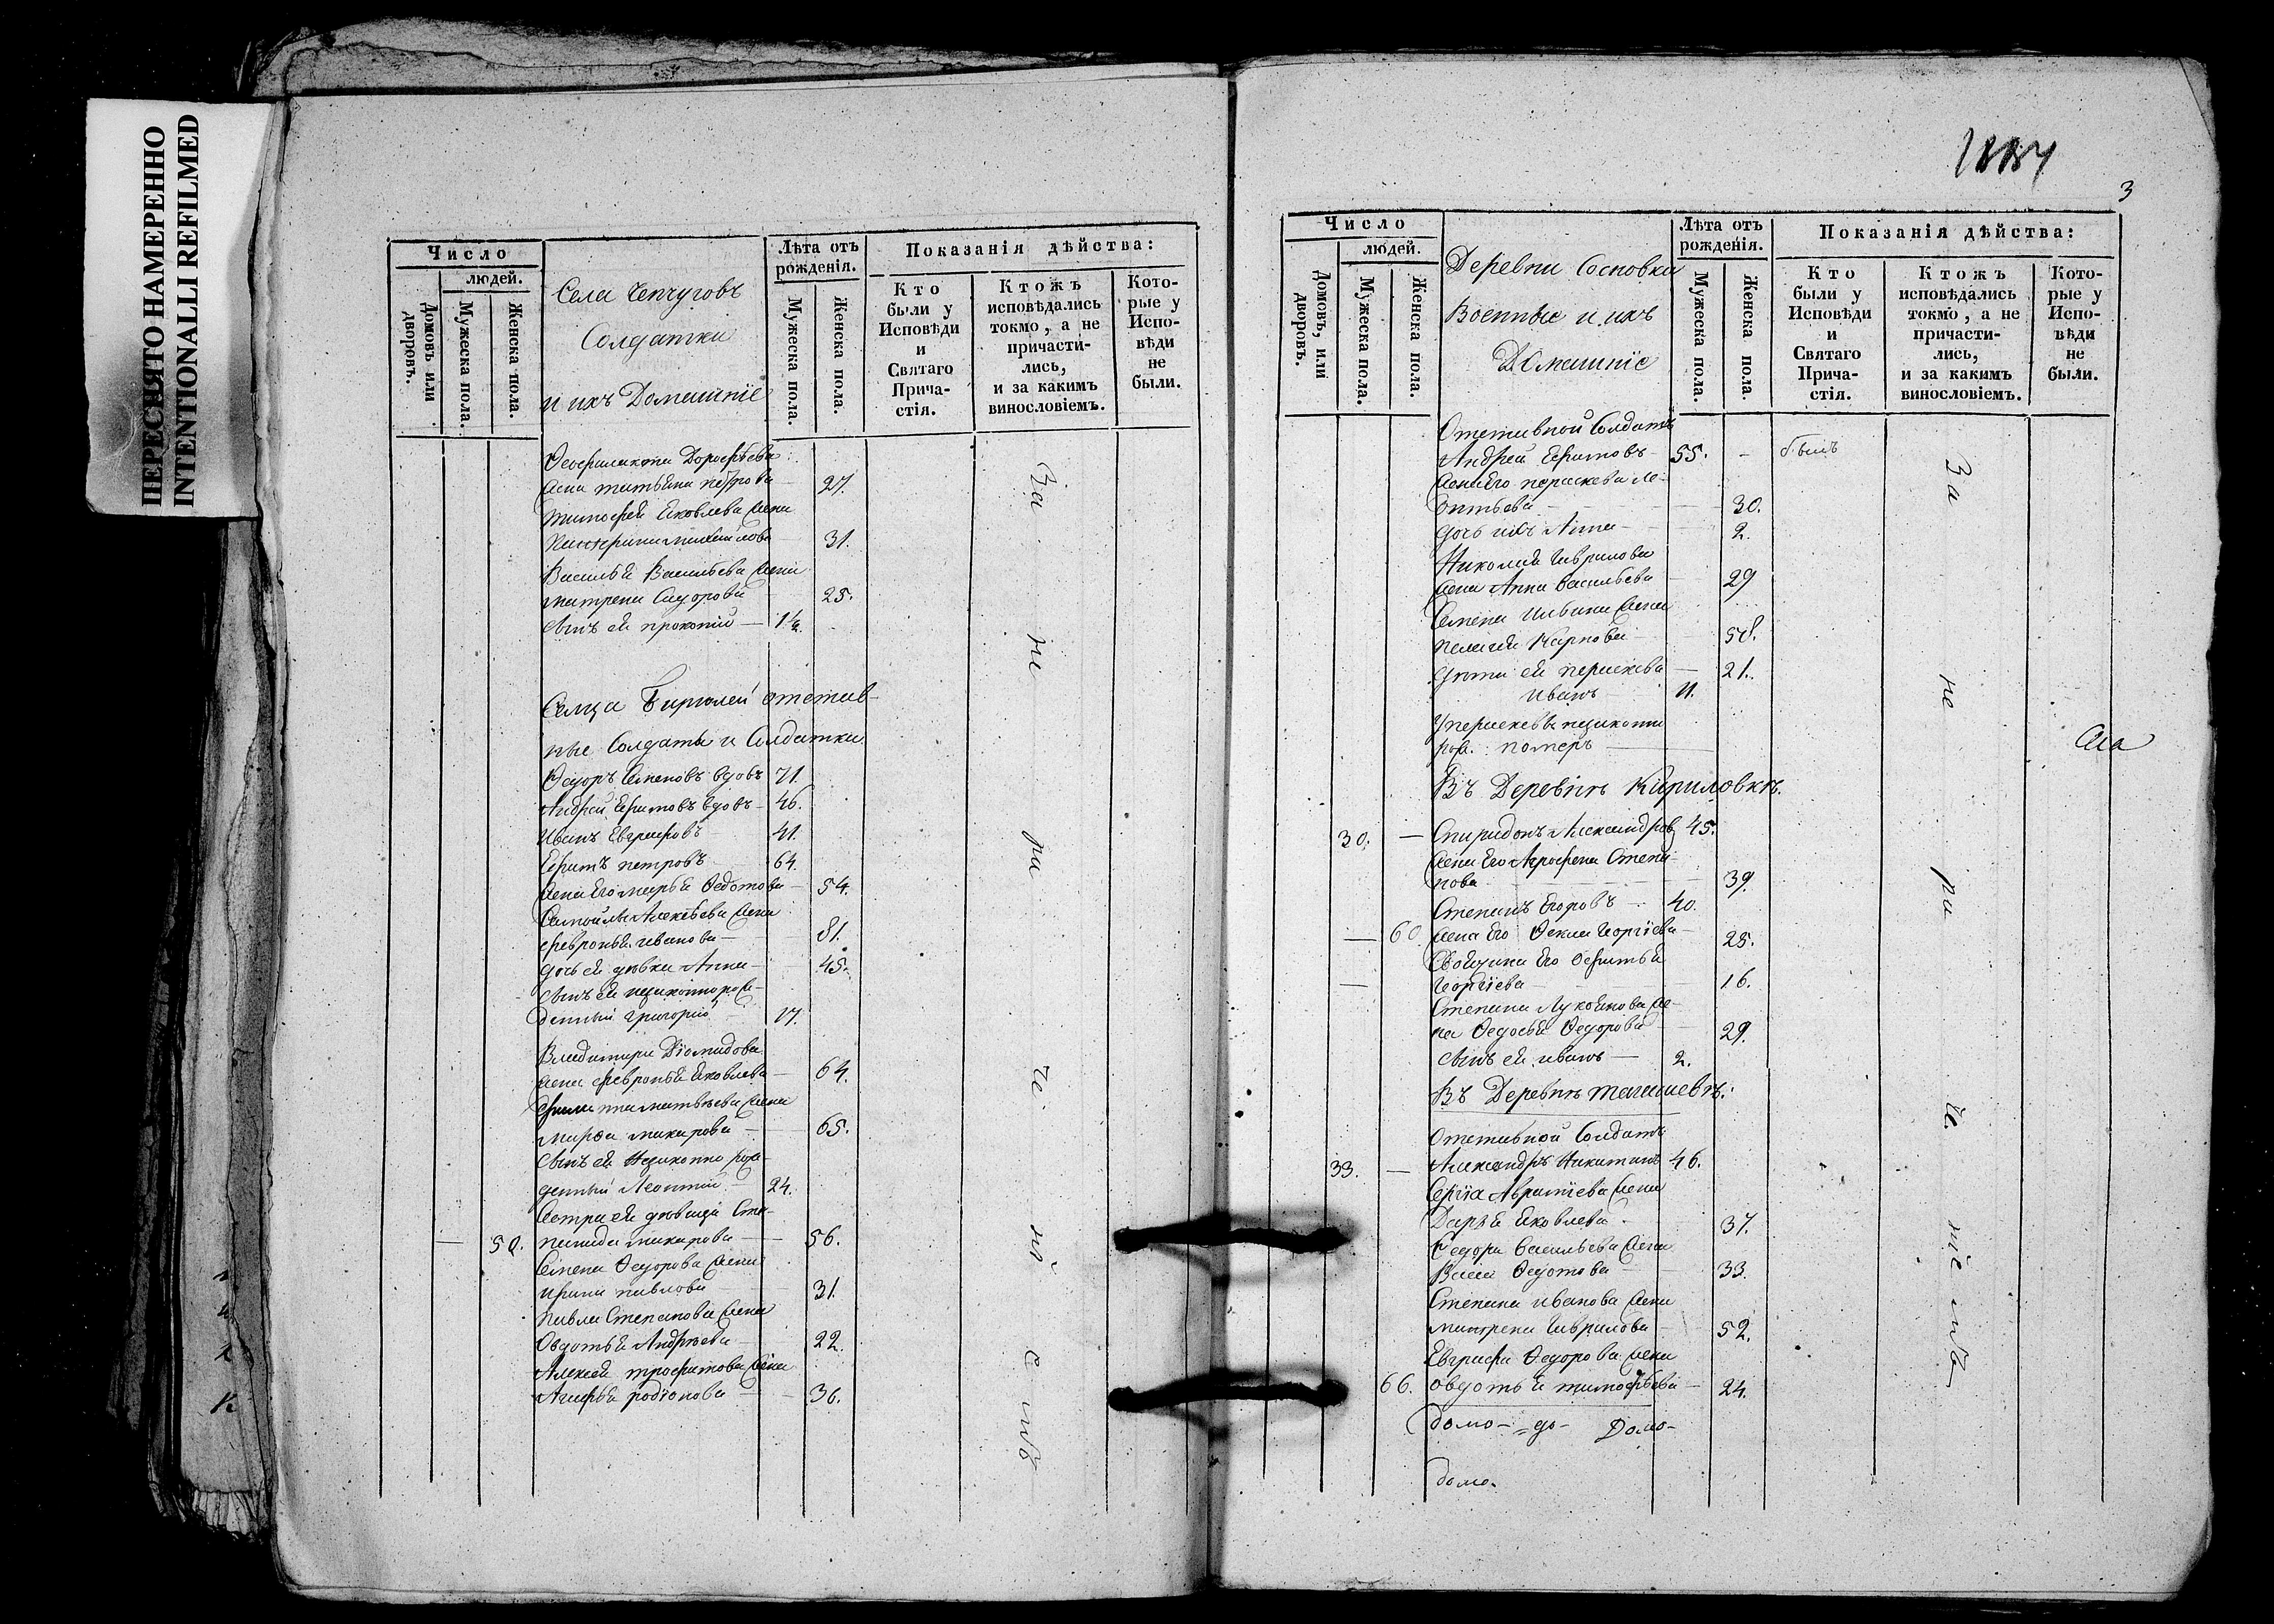 ПЕРЕСНЯТО НАМЕРЕННО
INTENTIONALLI REFILMED
Число
людей.
Домовъ или дворовъ.
Мужеска пола.
Женска пола.
Села Чепчуговъ
Солдатки
и ихъ Домашніе
Лѣта отъ рожденія.
Мужеска пола.
Женска пола.
Показанія дѣйства:
Кто были у Исповѣди и Святаго Причастія.
Ктожъ исповѣдались токмо, а не причастились, и за какимъ винословіемъ.
Которые у Исповѣди не были.
Феофилакта Дорофѣева
жена татьяна петрова 27.
тимофей Яковлева жена
михаилова 31.
Василья Васильева жена
матрена Сидорова 25.
сынъ ея прокопий 1½
Сельца отстав-
ные Солдаты и Солдатки
Федоръ Семеновъ вдовъ 71.
Андрей Ефимовъ вдовъ 46.
Иванъ Евграфовъ 41.
Ефимъ петровъ 64.
жена Его марья Федотова 54.
Самойлы Алексѣева жена
февронья иванова 81.
дочь ея дѣвка Анна 45.
сынъ ея незаконнорож-
денный Григорий 17.
Владимира Діомидова
жена февронья Яковлева 64.
филипа матвѣева жена
марфа макарова 65.
сынъ ея Незаконно рож-
денный Леонтий 24.
Сестра ея дѣвица Сте-
панида макарова 56.
50.
Семена Федорова жена
ирина павлова 31.
павла Степанова жена
Овдотья Андрѣева 22.
Алексѣй трофимова жена
Агафья родіонова 36.
За не ра че ні емъ
3
Число
людей.
Домовъ, или дворовъ.
Мужеска пола.
Женска пола.
Деревни Сосновки
Военные и ихъ
Домашніе
Лѣта отъ рожденія.
Мужеска пола.
Женска пола
Показанія дѣйства:
Кто были у Исповѣди и Святаго Причастія.
Ктожъ исповѣдались токмо, а не причастились, и за какимъ винословіемъ.
Которые у Исповѣди не были.
Отставной Солдатъ
Андрей Ефимовъ 55. - былъ
жена Его параскева Ле-
онтьева 30.
дочь ихъ Анна 2.
Николая Гаврилова
жена Анна васильева 29
Семена жена
пелагея Карпова 58.
дѣти ея параскева 21.
иванъ 11.
У параскевы незаконно
рож. померъ
Въ Деревнѣ Кириловкѣ.
30. - Спиридонъ Александров 45.
жена Его Агрофена Степа-
нова 39.
Степанъ Егоровъ 40.
60. жена Его Фекла Георгіева 25.
Свояченица Его Офимья
Георгіева 16.
Степана Лукоянова же-
на Федосья Федорова 29.
сынъ ея иванъ 2.
Въ Деревнѣ
Отставной Солдатъ
33. - Александръ Никитинъ 46.
Сергія жена
Дарья Яковлева 37.
Федора васильева жена
Федотова 33.
Степана иванова жена
матрена Гаврилова 52.
Евграфа Федорова жена
66. овдотья тимофѣева 24.
домо- до- Домо-
домо.
За не ра че ніе мъ